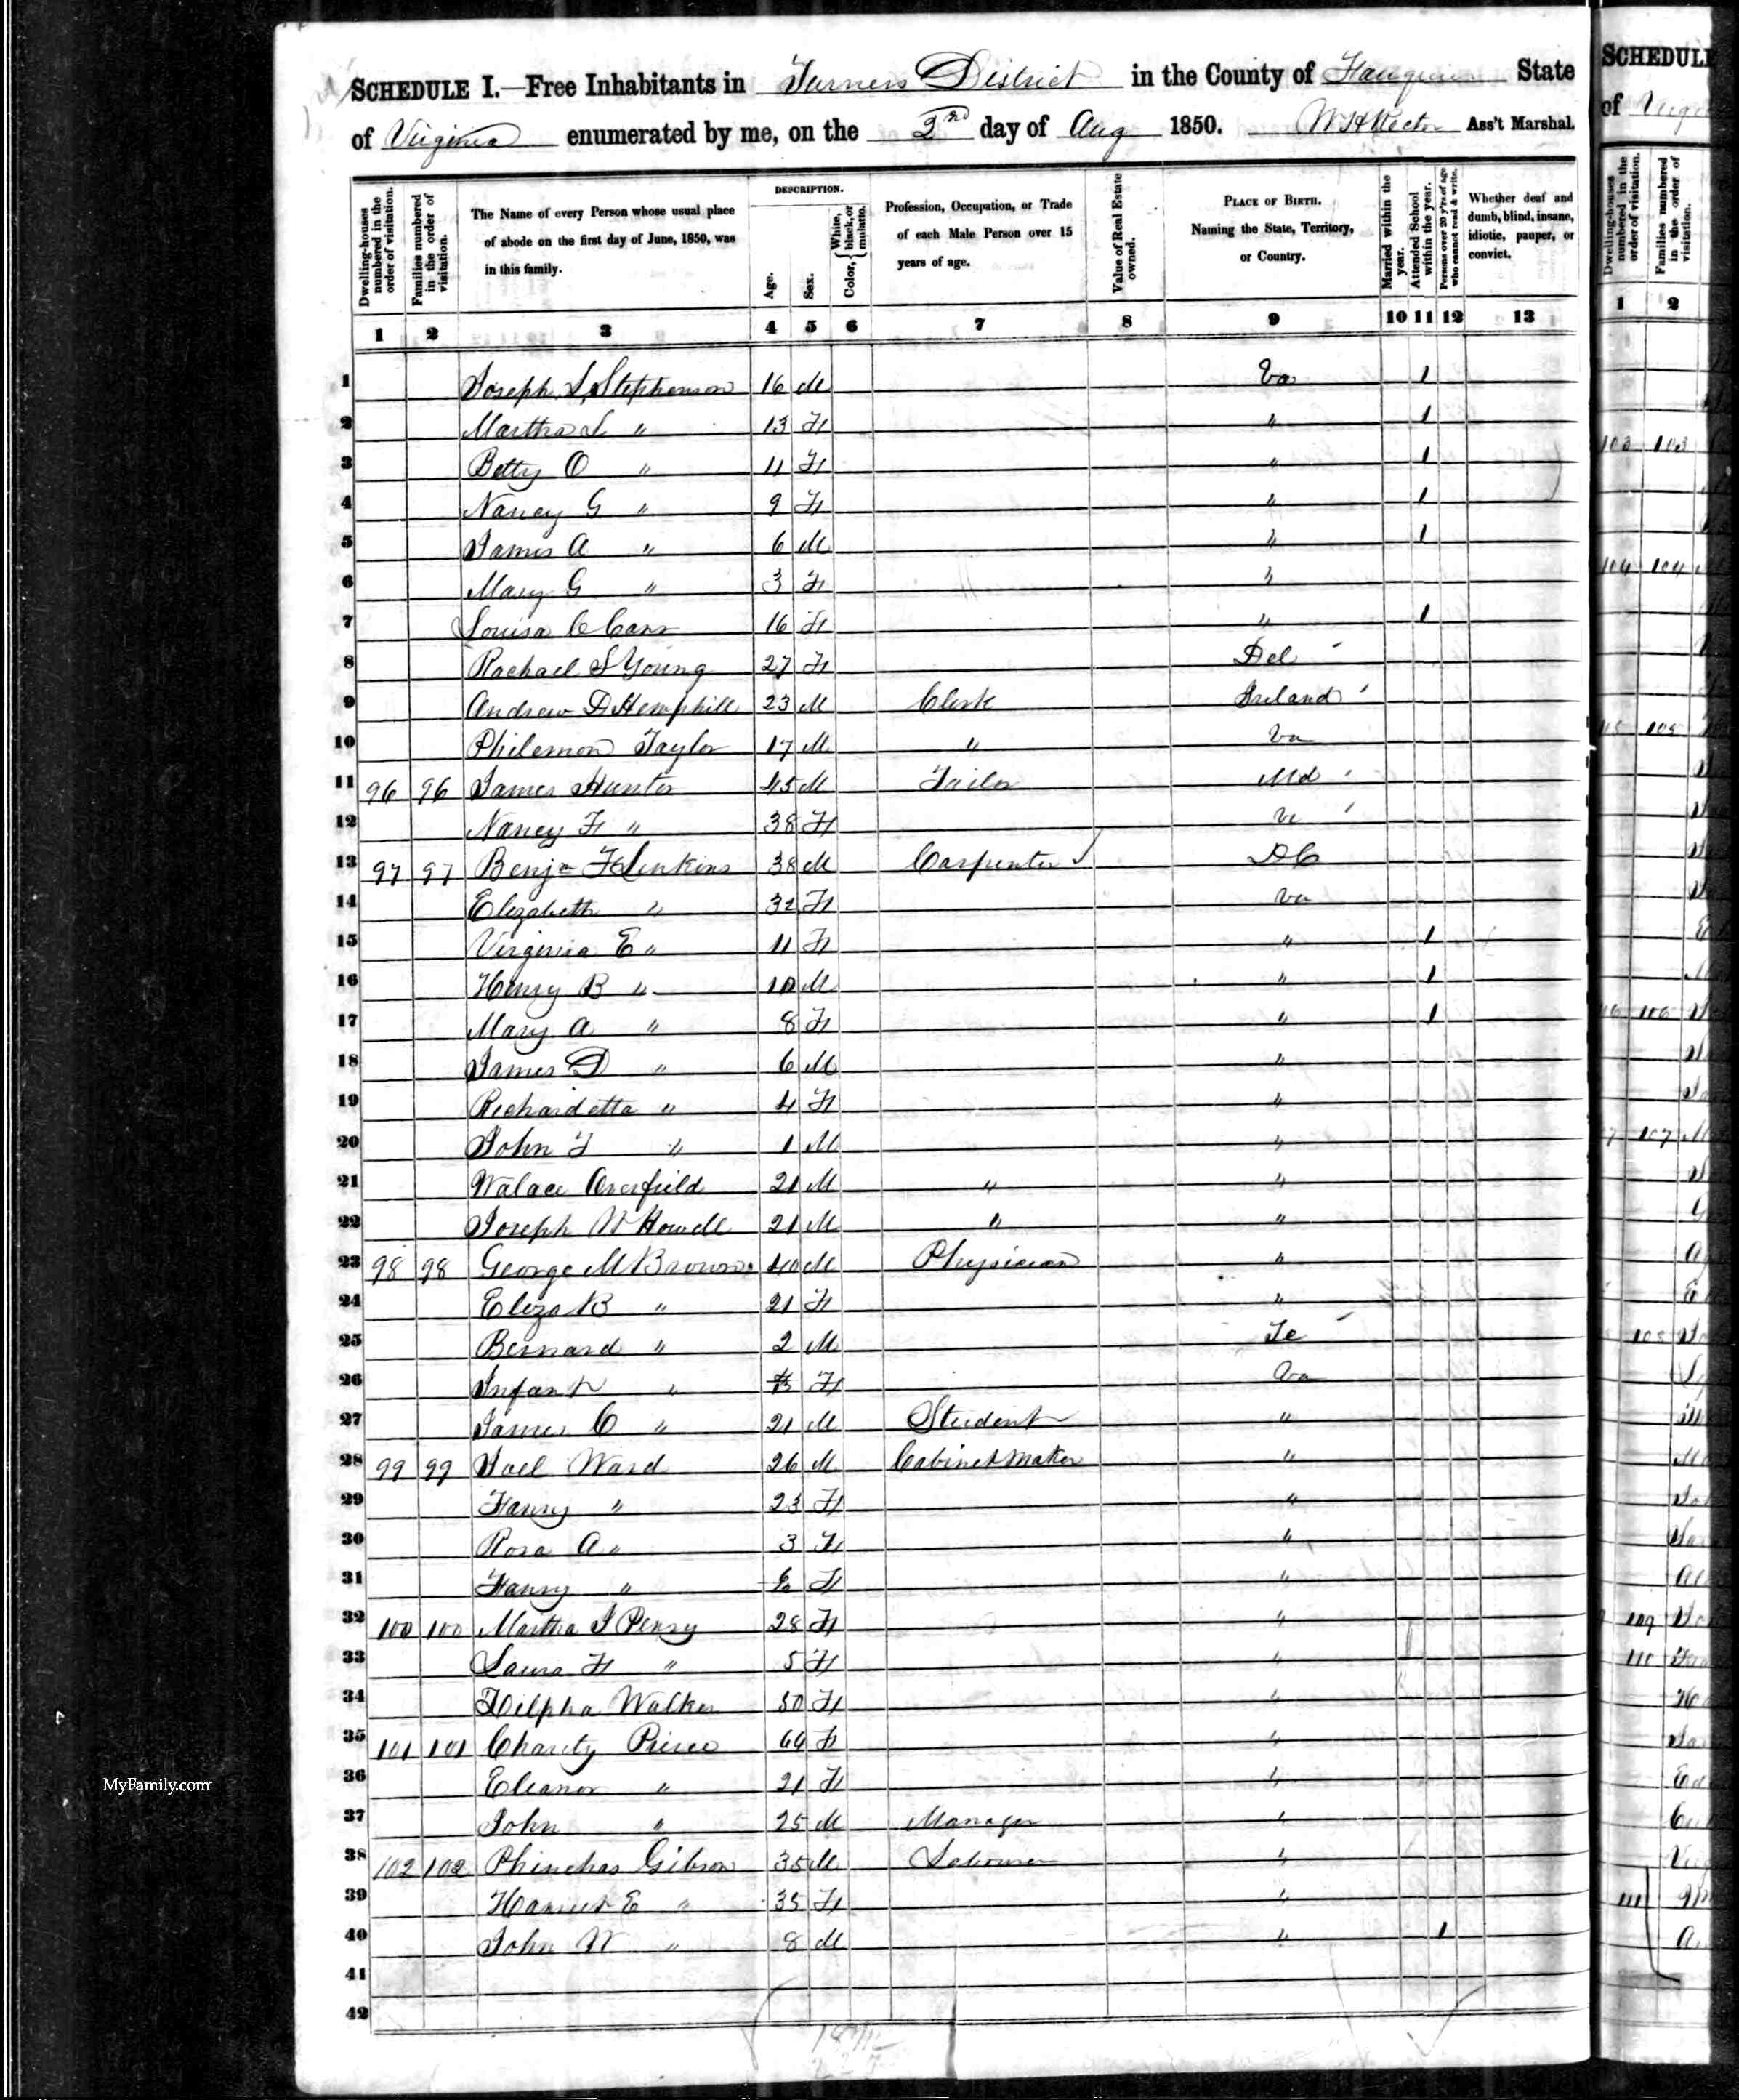 SCHEDULE I.—Free Inhabitants in Turners District in the County of Fauquier State
of Virginia enumerated by me, on the 2nd day of Aug 1850. W H Rector Ass't Marshal.
Dwelling-houses numbered in the order of visitation.
Families numbered in the order of visitation.
The Name of every Person whose usual place of abode on the first day of June, 1850, was in this family.
DESCRIPTION.
Age.
Sex.
Color, { White, black, or mulatto.
Profession, Occupation, or Trade of each Male Person over 15 years of age.
Value of Real Estate owned.
PLACE OF BIRTH. Naming the State, Territory, or Country.
Married within the year.
Attended School within the year.
Persons over 20 y'rs of age who cannot read & write.
Whether deaf and dumb, blind, insane, idiotic, pauper, or convict.
1 2 3 4 5 6 7 8 9 10 11 12 13
1 Joseph S Stephenson 16 M Va 1
2 Martha S " 13 F " 1
3 Betty O " 11 F " 1
4 Nancy G " 9 F " 1
5 James A " 6 M " 1
6 Mary G " 3 F "
7 Louisa C Carr 16 F " 1
8 Rachael S Young 27 F Del
9 Andrew D Hemphill 23 M Clerk Ireland
10 Philemon Taylor 17 M " Va
11 96 96 James Hunter 45 M Tailor Md
12 Nancy F " 38 F
13 97 97 Benja F Jenkins 38 M Carpenter DC
14 Elizabeth " 32 F Va
15 Virginia E " 11 F " 1
16 Henry B " 10 M " 1
17 Mary A " 8 F " 1
18 James D " 6 M "
19 Richardetta " 4 F "
20 John T " 1 M "
21 Walace Overfield 21 M " "
22 Joseph W Howell 21 M " "
23 98 98 George M Brown 40 M Physician "
24 Eliza B " 21 F "
25 Bernard " 2 M Te
26 Infant " F Va
27 James C " 21 M Student "
28 99 99 Joel Ward 26 M Cabinet maker "
29 Fanny " 23 F "
30 Rosa A " 3 F "
31 Fanny " F "
32 100 100 Martha J Penny 28 F "
33 Laura F " 5 F "
34 Delpha Walker 50 F "
35 101 101 Charity Pierce 64 F "
36 Eleanor " 21 F "
37 John " 25 M Manager "
38 102 102 Phinehas Gibson 35 M Labourer "
39 Harriet E " 35 F "
40 John W " 8 M " 1
41
42
MyFamily.com
SCHEDULE
of Virg
Dwelling-houses numbered in the order of visitation.
Families numbered in the order of visitation.
1 2
103 103
104 104
105
106
107
108
109
110
111